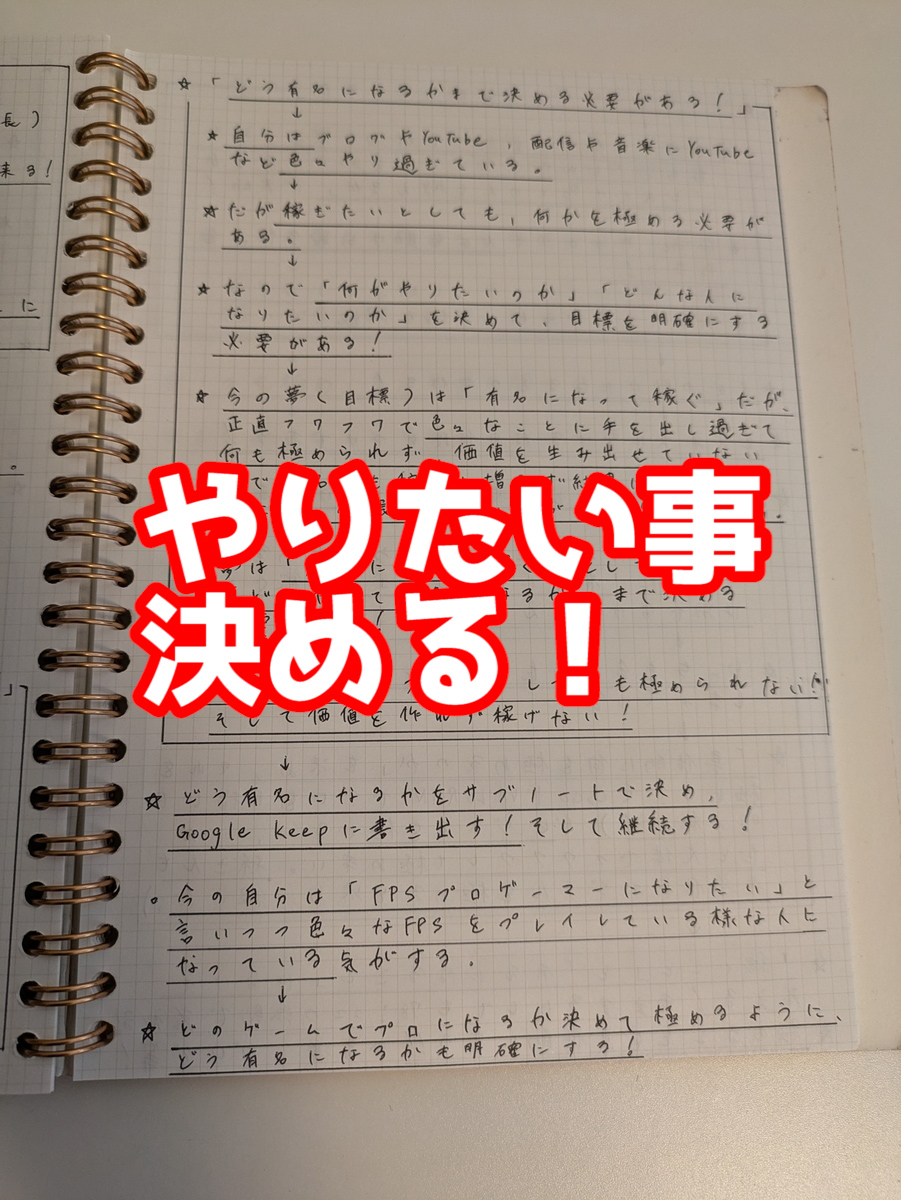 長)
来る!
に
。
」
☆「どう有名になるかまで決める必要がある!」
↓
★自分はブログやYouTube、配信や音楽にYouTube
など色々やり過ぎている。
↓
★だが稼ぎたいとしても、何かを極める必要が
ある。
↓
★なので「何がやりたいのか」「どんな人に
なりたいのか」を決めて、目標を明確にする
必要がある!
↓
★今の夢(目標)は「有名になって稼ぐ」だが、
正直フワフワで色々なことに手を出し過ぎて
何も極められず、価値を生み出せていない
やりたい事
決める!
まで決める
も極められない!
そして価値を作れず稼げない!
↓
☆どう有名になるかをサブノートで決め、
Google Keepに書き出す!そして継続する!
。今の自分は「FPSプロゲーマーになりたい」と
言いつつ色々なFPSをプレイしている様な人に
なっている気がする.
↓
☆どのゲームでプロになるか決めて極めるように、
どう有名になるかも明確にする!